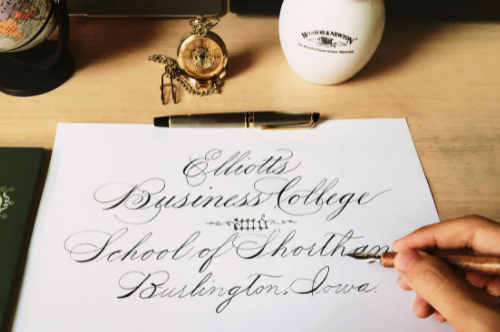 WINSOR & NEWTON
Elliotts
Business College
and
School of Shorthan
Burlington, Iowa.